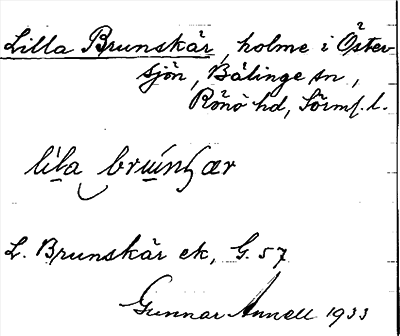 Lilla Brunskär, holme i Öster-
sjön, Bälinge sn,
Rönö hd, Sörml. l.
lila brunʃær
L. Brunskär ek, G. 57
Gunnar Annell 1933